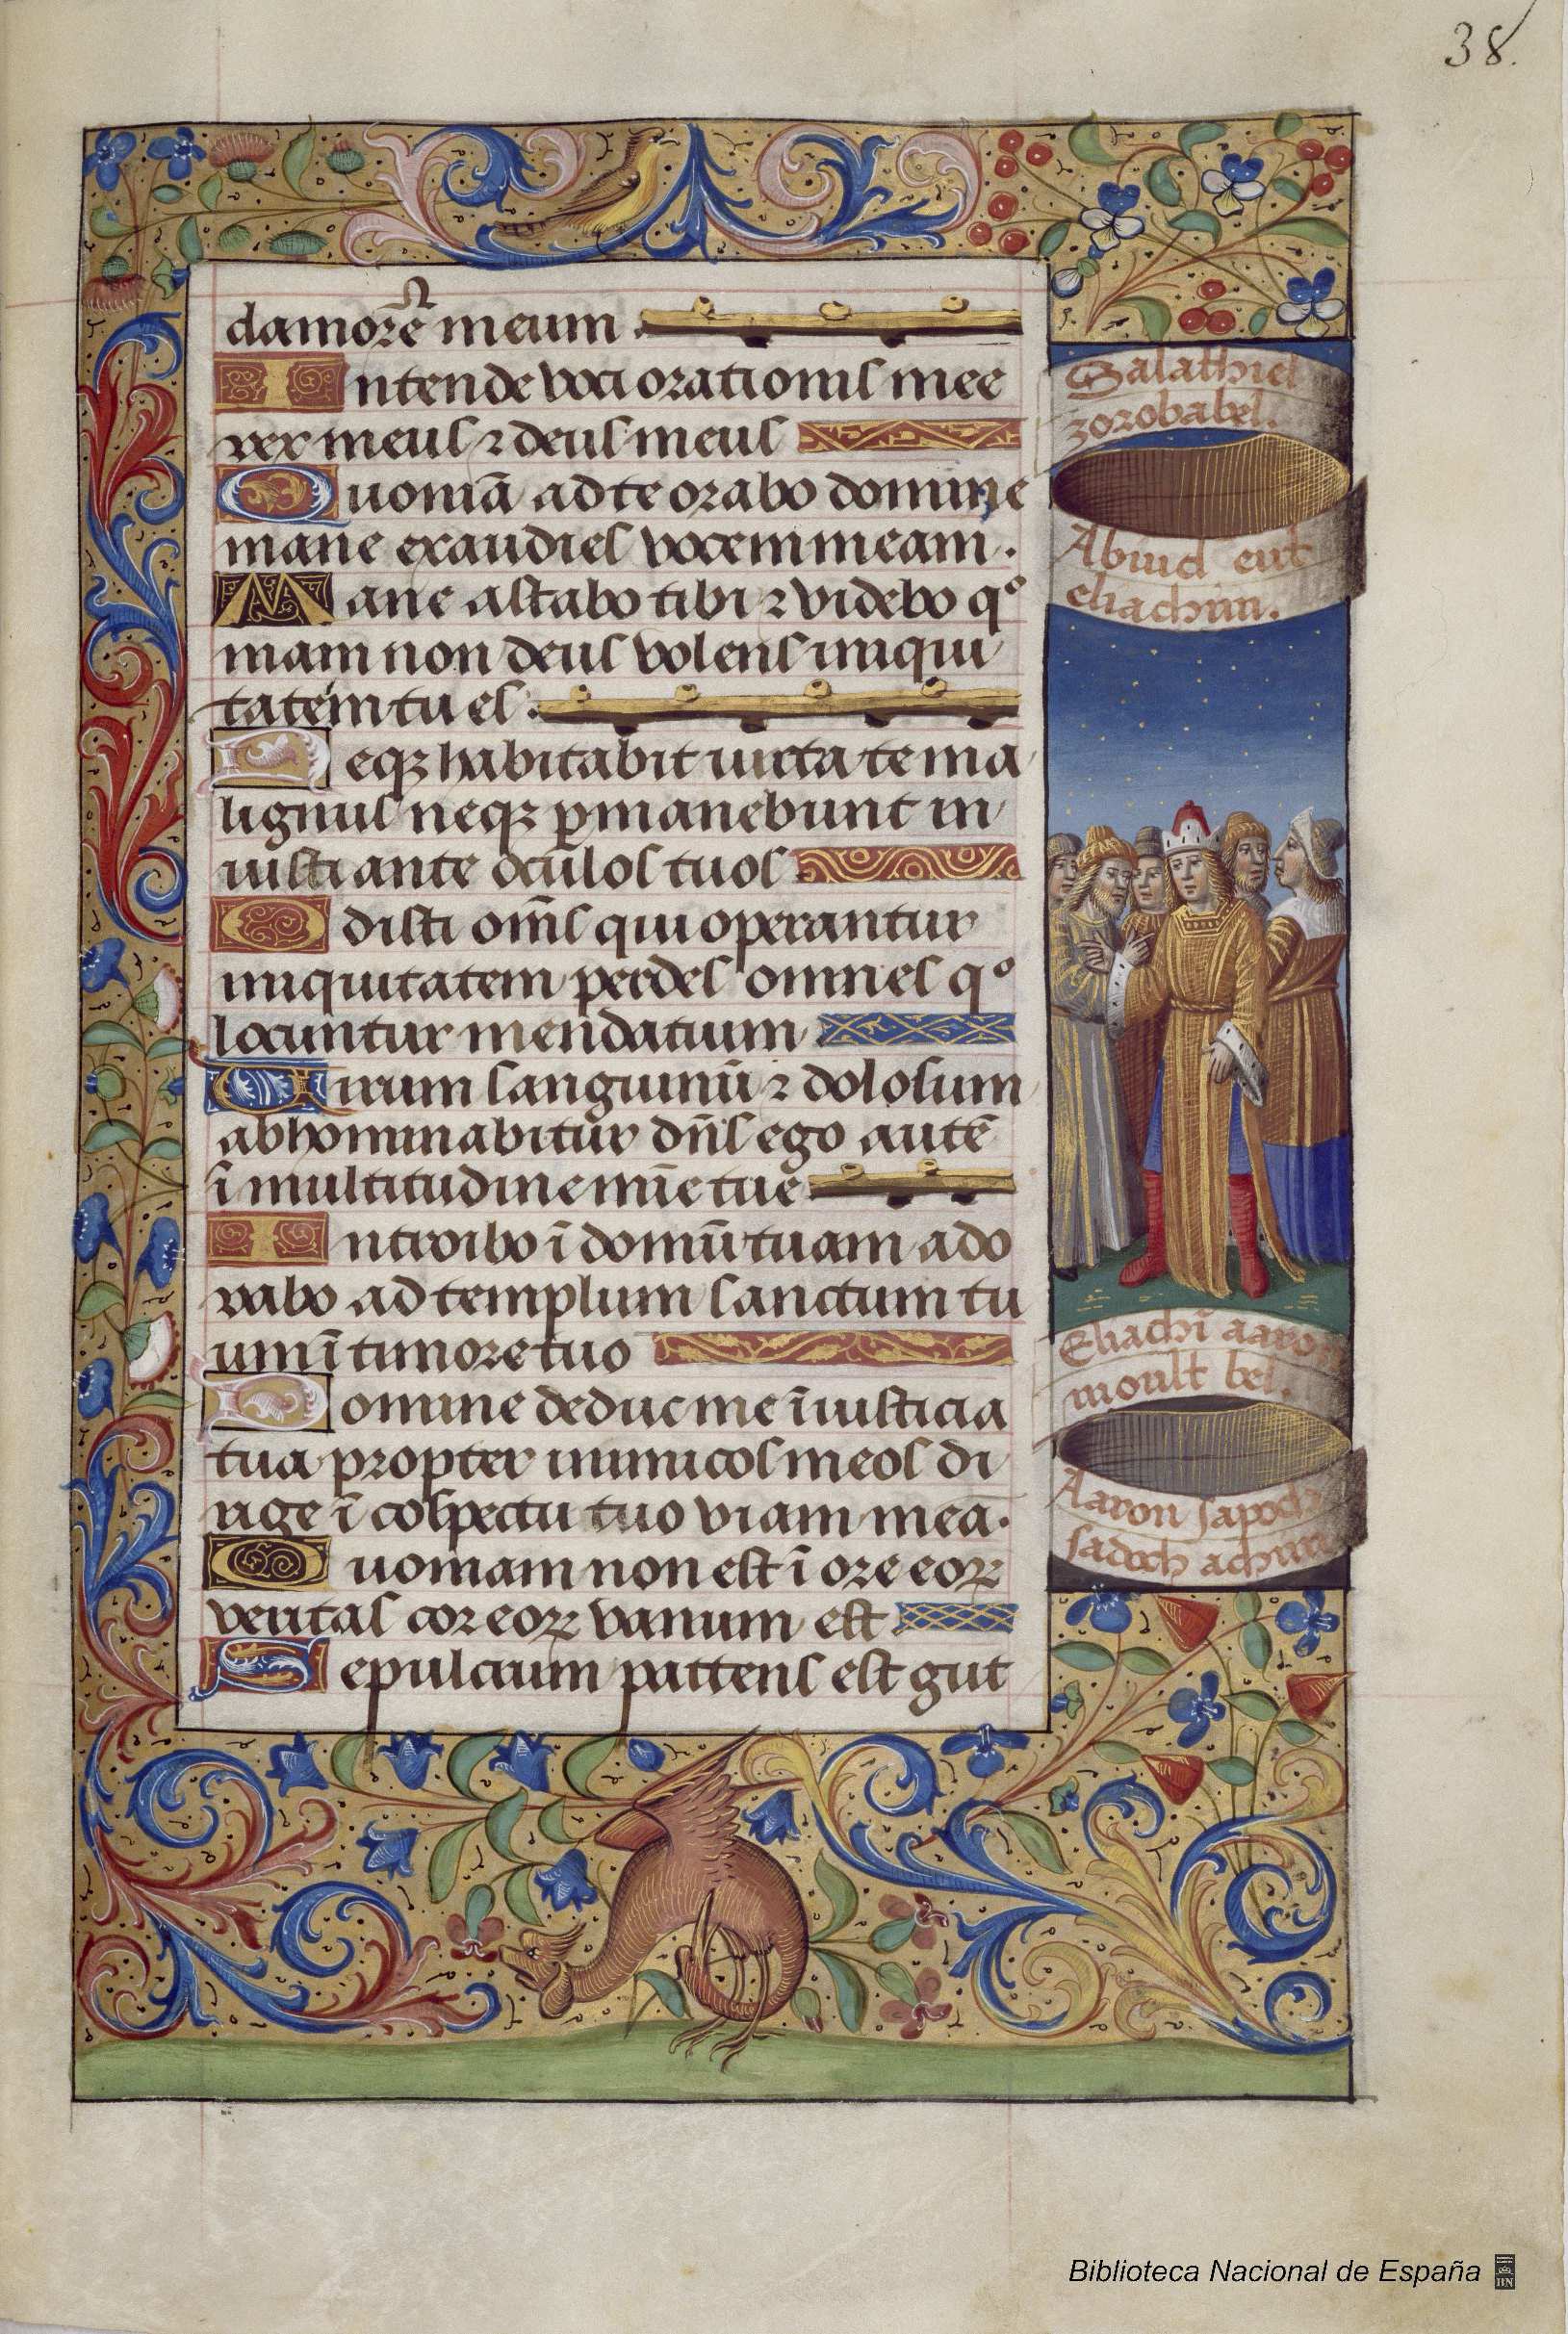 38.
damorē meum
Intende voci orationis mee
rex meus ⁊ deus meus
Quoniā ad te orabo domine
mane exaudies vocem meam.
Mane astabo tibi ⁊ videbo qº
niam non deus volens iniqui
tatem tu es.
Neqꝫ habitabit iuxta te ma
lignus neqꝫ ꝑmanebunt in
iusti ante oculos tuos
Odisti om̄s qui operantur
iniquitatem perdes omnes qº
locuntur mendatium
Virum sanguinū ⁊ dolosum
abhominabitur dn̄s ego autē
ī multitudine mīe tue
Introibo ī domū tuam ado
rabo ad templum sanctum tu
um ī timore tuo
Domine deduc me ī iusticia
tua propter inimicos meos di
rige ī cōspectu tuo viam meā.
Quoniam non est ī ore eoꝝ
veritas cor eoꝝ vanum est
Sepulcrum pattens est gut
Salathiel
zorobabel.
Abiud eut
eliachim.
Eliachī aaron
moult bel.
Aaron
sadoch achim
Biblioteca Nacional de España
BN